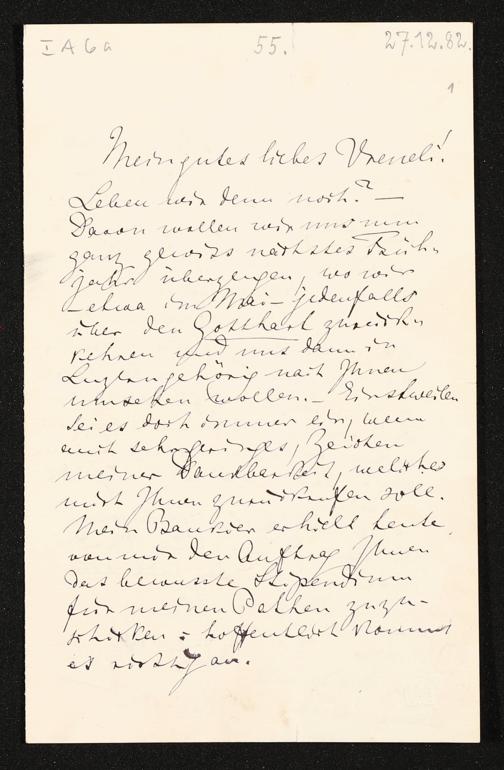 I A 6 a 55. 27.12.82.
1
Mein gutes liebes Vreneli!
Leben wir denn noch? —
Davon wollen wir uns nun
ganz gewiss nächstes Früh-
jahr überzeugen, wo wir
— etwa im Mai — jedenfalls
über den Gotthart zurück-
kehren und uns dann in
Luzern gehörig nach Ihnen
umsehen wollen. — Einstweilen
sei es doch immer ein, wenn
auch sehr geringes, Zeichen
meiner Dankbarkeit, welches
mich Ihnen zurückrufen soll.
Mein Bankier erhielt heute
von mir den Auftrag Ihnen
das bewusste Stipendium
für meinen Pathen zuzu-
schicken: hoffentlich kommt
es richtig an.